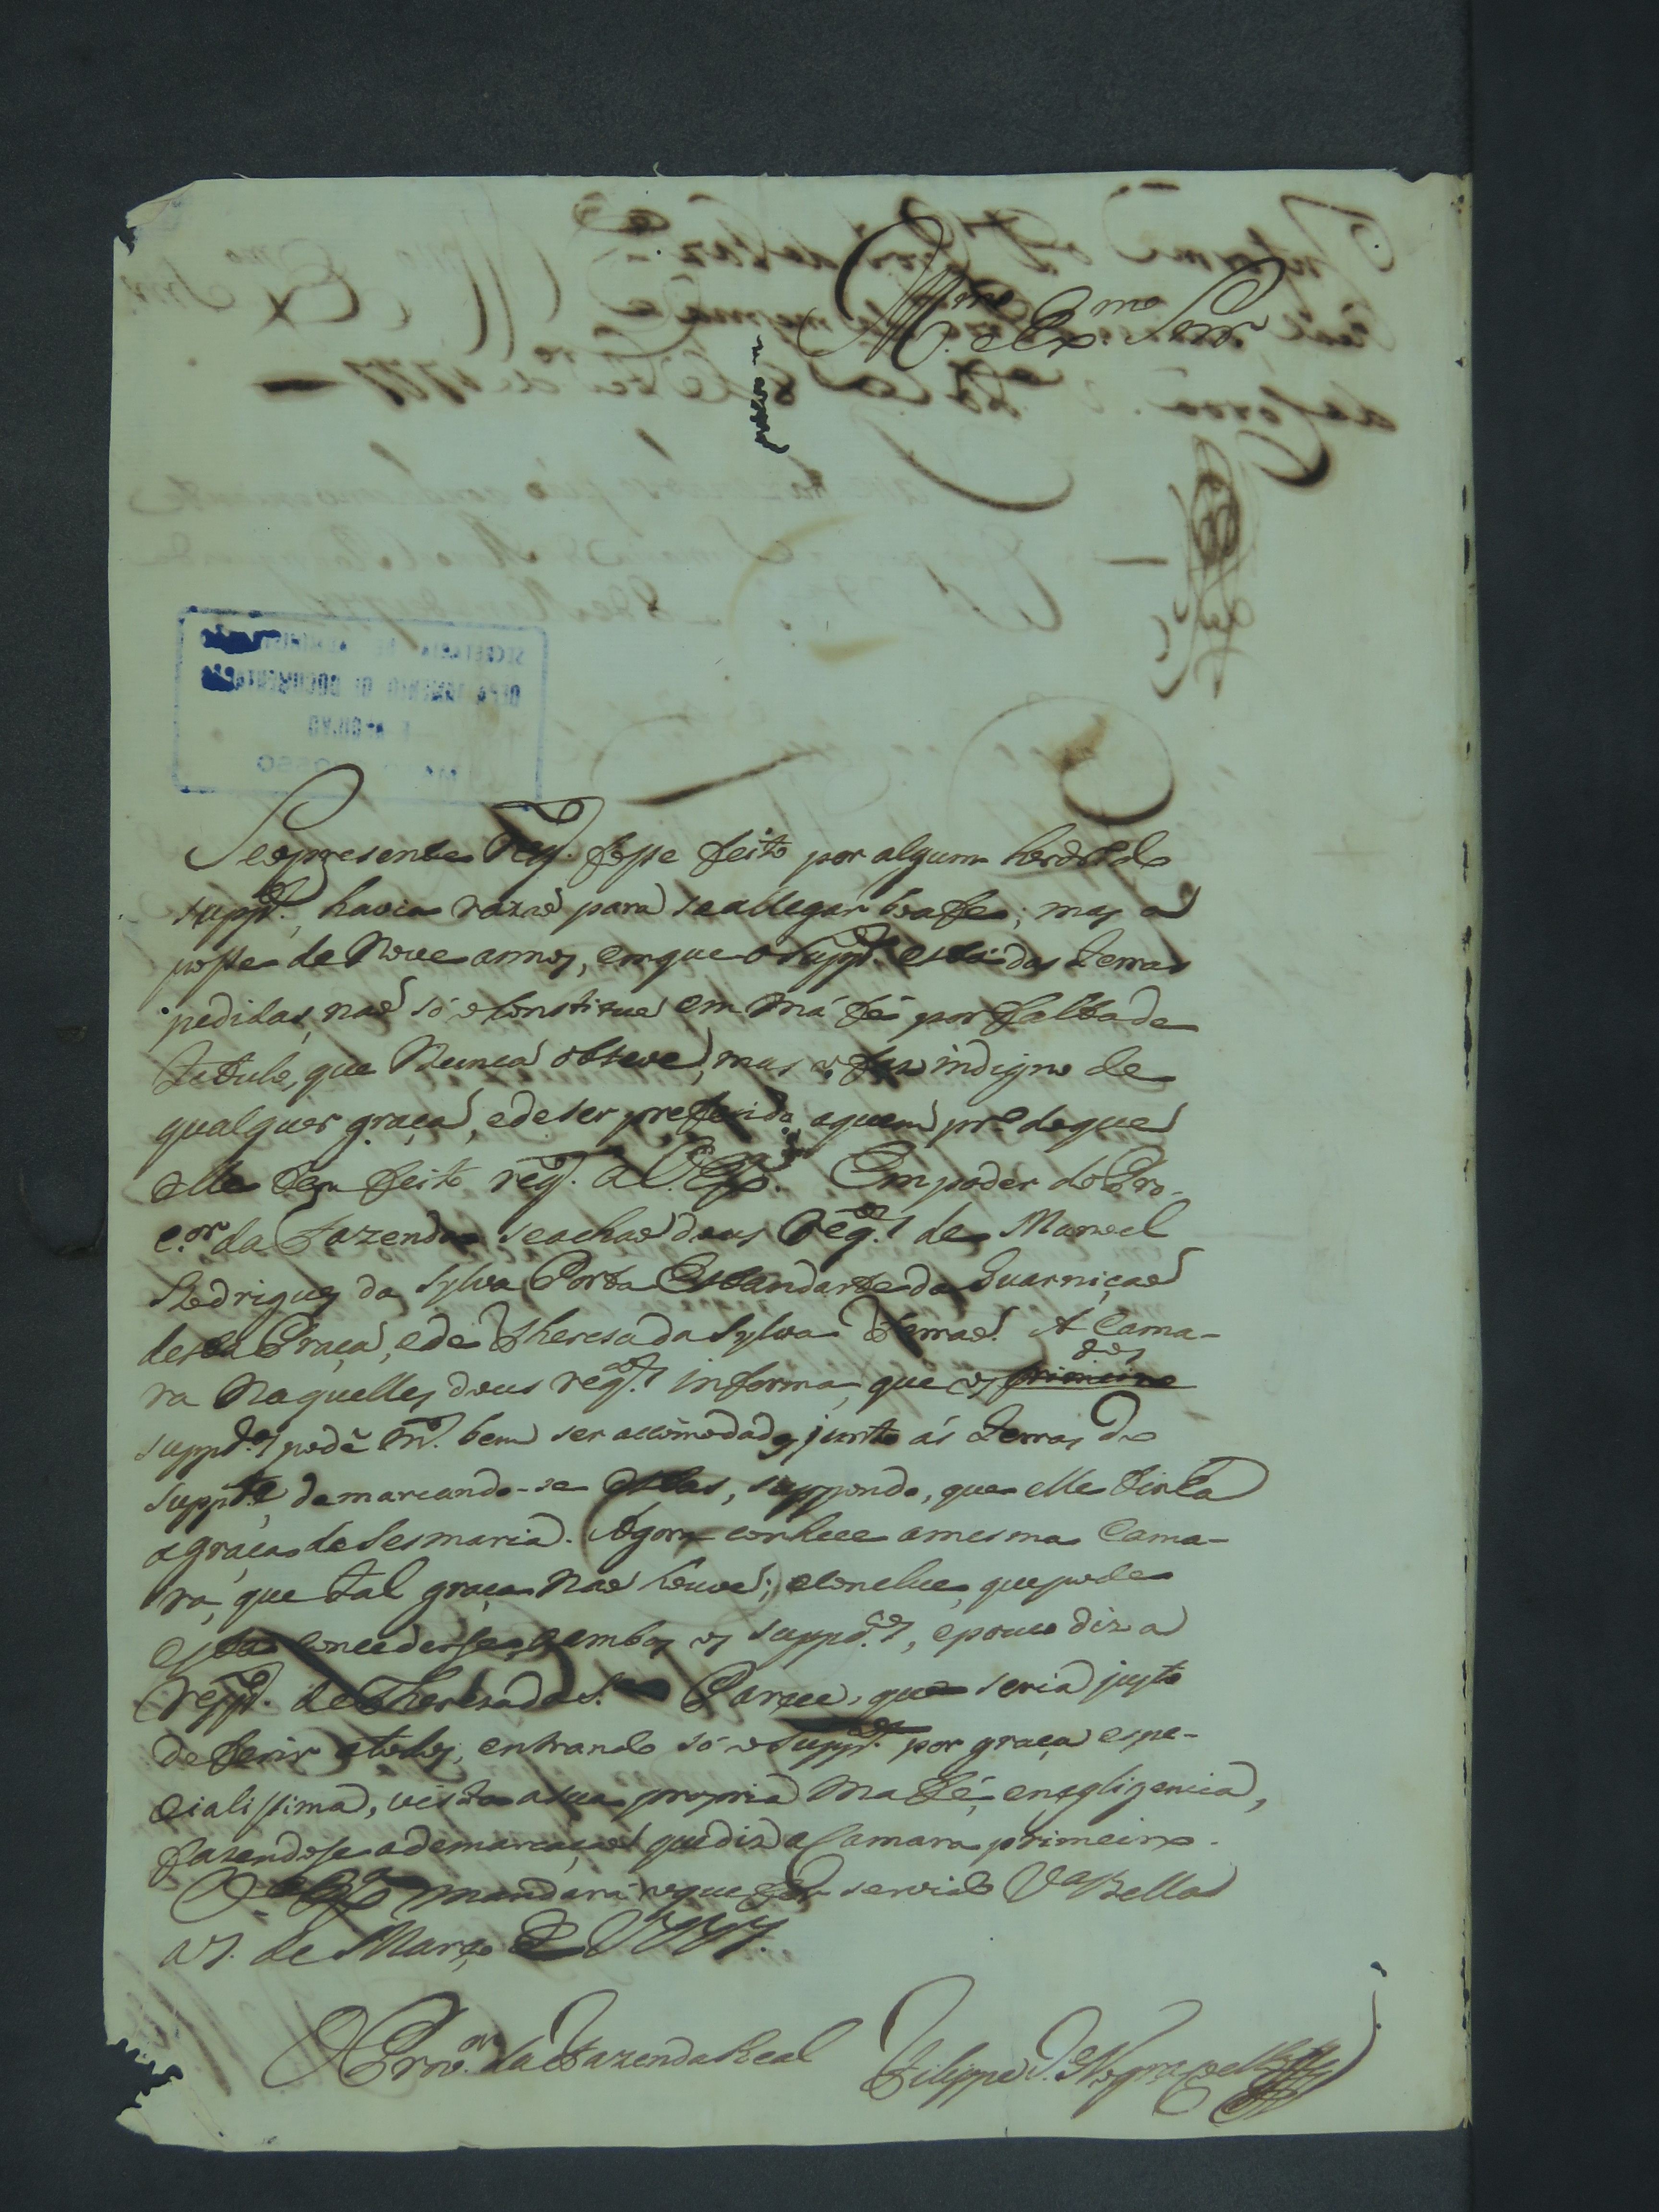 Ill.mo e Ex.mo Senr
Se o presente Reqr.to fosse feito por algum herdr.o do
supp.te, havia razaõ para se allegar boa fee; mas a
posse de Nove annos, em que o supp.te está das terras
pedidas, naõ só o Constitue em má fé por falta de
Titulo, que Nunca obteve, mas o faz indigno de
qualquer graça, e de ser preferido, a quem pr.o do que
elle tem feito req.to a V. Ex.a. Em poder do Pro-
c.or da Fazenda se achaõ dous Reqr.tos de Manoel
Rodrigues da Sylva Porta Estandarte da Guarniçaõ
desta Praça, e de Theresa da Sylva Ferraõ. A Cama-
ra Naquelles dous reqr.tos informa, que os primeiros
supp.tes podẽ m.to bem ser accõmodados junto ás terras do
supp.te, demarcando-se estas, suppondo, que elle tinha
a graça de Sesmaria. Agora conhece a mesma Cama-
ra, que tal graça Naõ houve; e conclue, que pode
esta conceder-se a ambos os supp.tes, e pouco diz a
resp.to de Theresa da S.a Parece, que seria justo
deferir a todos, entrando só o supp.te por graça espe-
cialissima, vista a sua propria Má fé, e negligencia,
fazendose a demarcaçaõ que diz a Camara primeiro.
V. Ex.a mandará o que for servido V.a Bella
a 7. de Março de 1777.
O Prov.or da Fazenda Real Filippe J.e Nogr.a Coelho